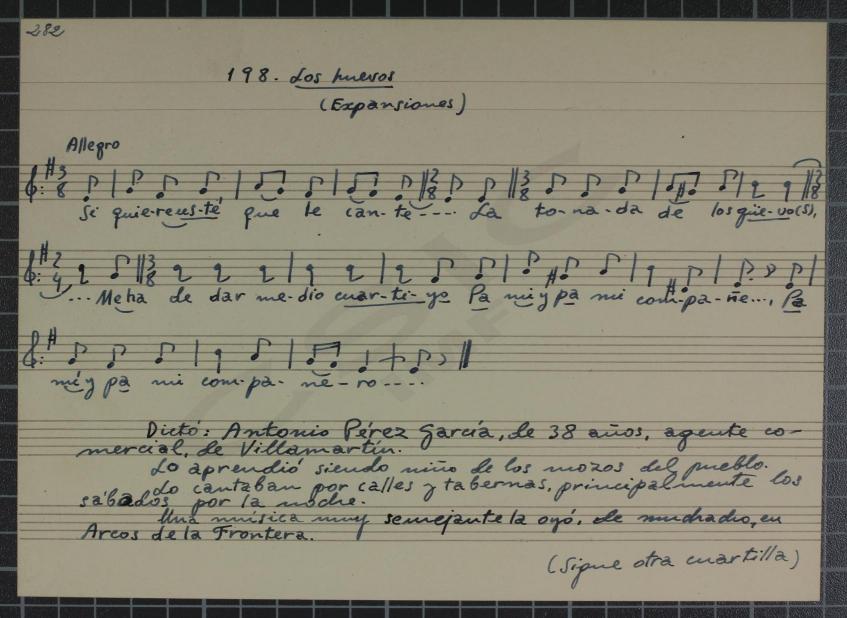 282
198. Los huevos
(Expansiones)
Allegro
Si quie-re us-té que le can-te---- La to-na-da de los güe-vo(s),
... Me ha de dar me-dio cuar-ti-yo Pa mí y pa mi com-pa-ñe..., Pa
mí y pa mi com-pa-ñe-ro----
Dictó: Antonio Pérez García, de 38 años, agente co-
mercial, de Villamartín.
Lo aprendió siendo niño de los mozos del pueblo.
Lo cantaban por calles y tabernas, principalmente los
sábados por la noche.
Una música muy semejante la oyó, de muchacho, en
Arcos de la Frontera.
(Sigue otra cuartilla)